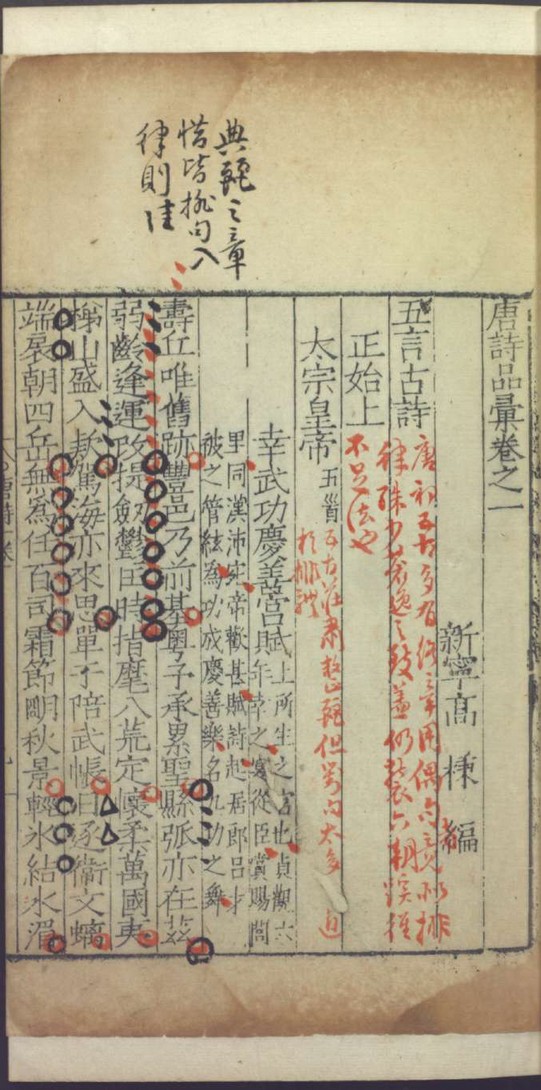 唐詩品彙卷之一
新寧高棅編
五言古詩
唐初五古多有通章用偶句竟似排
律殊少蒼逸之致蓋仍襲六朝蹊徑
不足法也
正始上
太宗皇帝五首
五古莊肅整麗但對句太多近
於排體
幸武功慶善宮賦
上所生之宮也貞觀六
年幸之宴從臣賞賜閭
里同漢沛宛帝歡甚賦詩起居郎呂才
被之管絃為功成慶善樂名九功之舞
壽丘唯舊跡豐邑乃前基粵予承累聖縣弧亦在茲
弱齡逢運改提劒鬱匡時指麾八荒定懷柔萬國夷
梯山盛入款駕海亦來思單于陪武帳日逐衛文螭
端扆朝四岳無為任百司霜節明秋景輕氷結水湄
典麗之章
惜皆排句入
律則佳